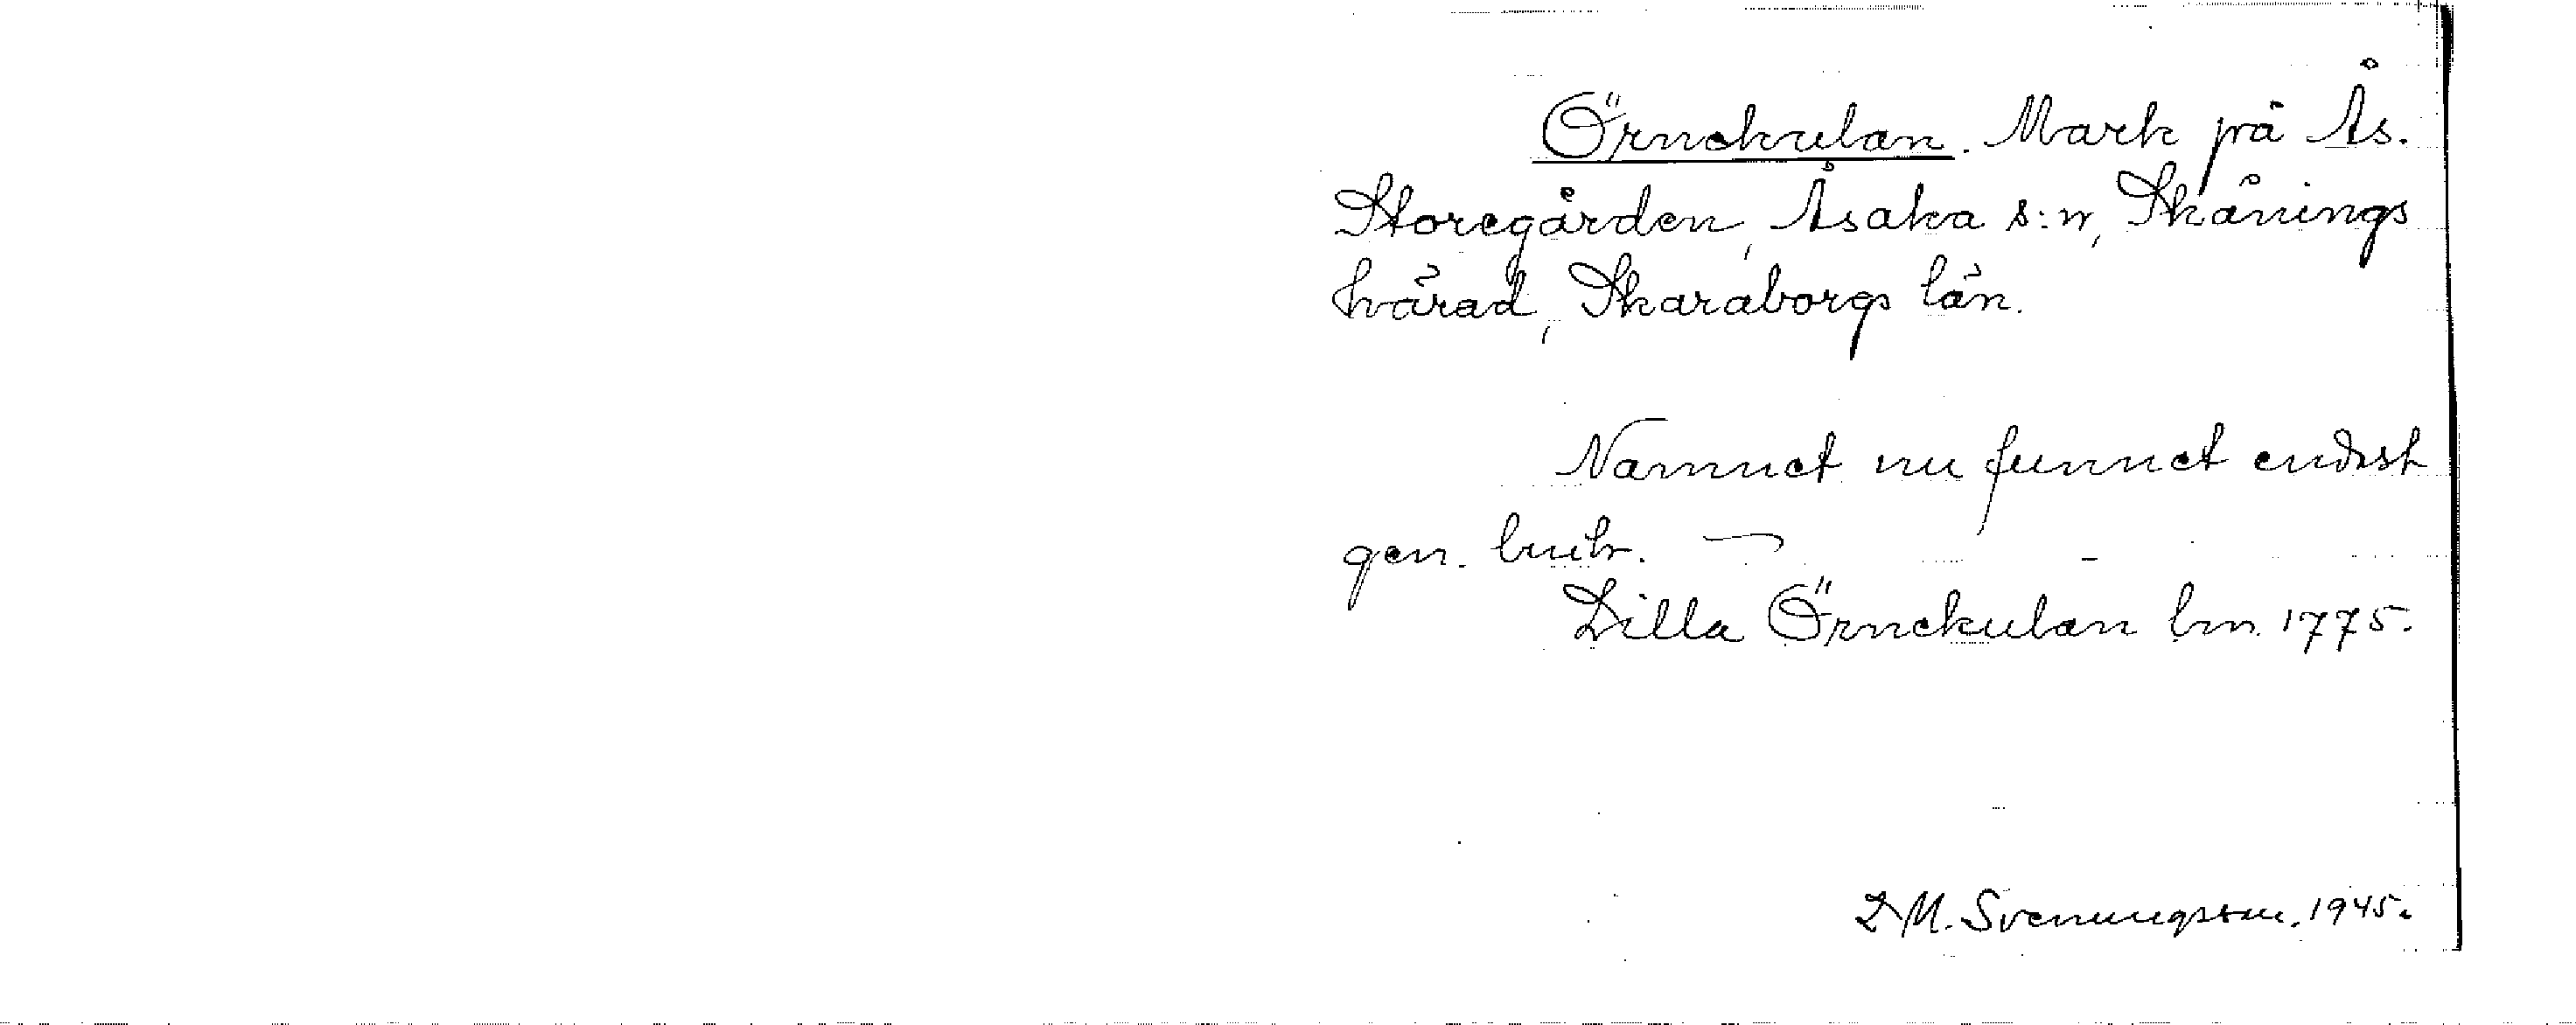 Örnekulan. Mark på Ås.
Storegården, Åsaka s:n, Skånings
härad, Skaraborgs län.
Namnet nu funnet endast
gen.
Lilla Örnekulan lm. 1775.
D M. Svenungsson. 1945.